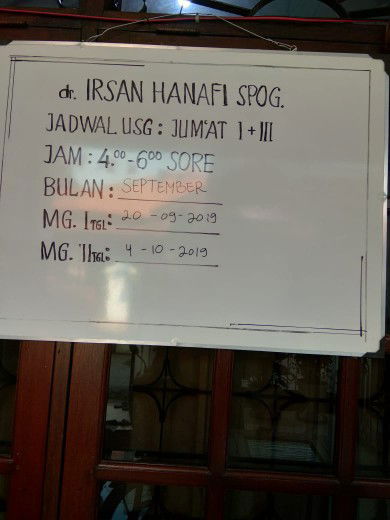 dr. IRSAN HANAFI SPOG.
JADWAL USG : JUM'AT I + III
JAM : 4.00 - 6.00 SORE
BULAN : SEPTEMBER
MG. I TGL : 20 - 09 - 2019
MG. II TGL : 4 - 10 - 2019